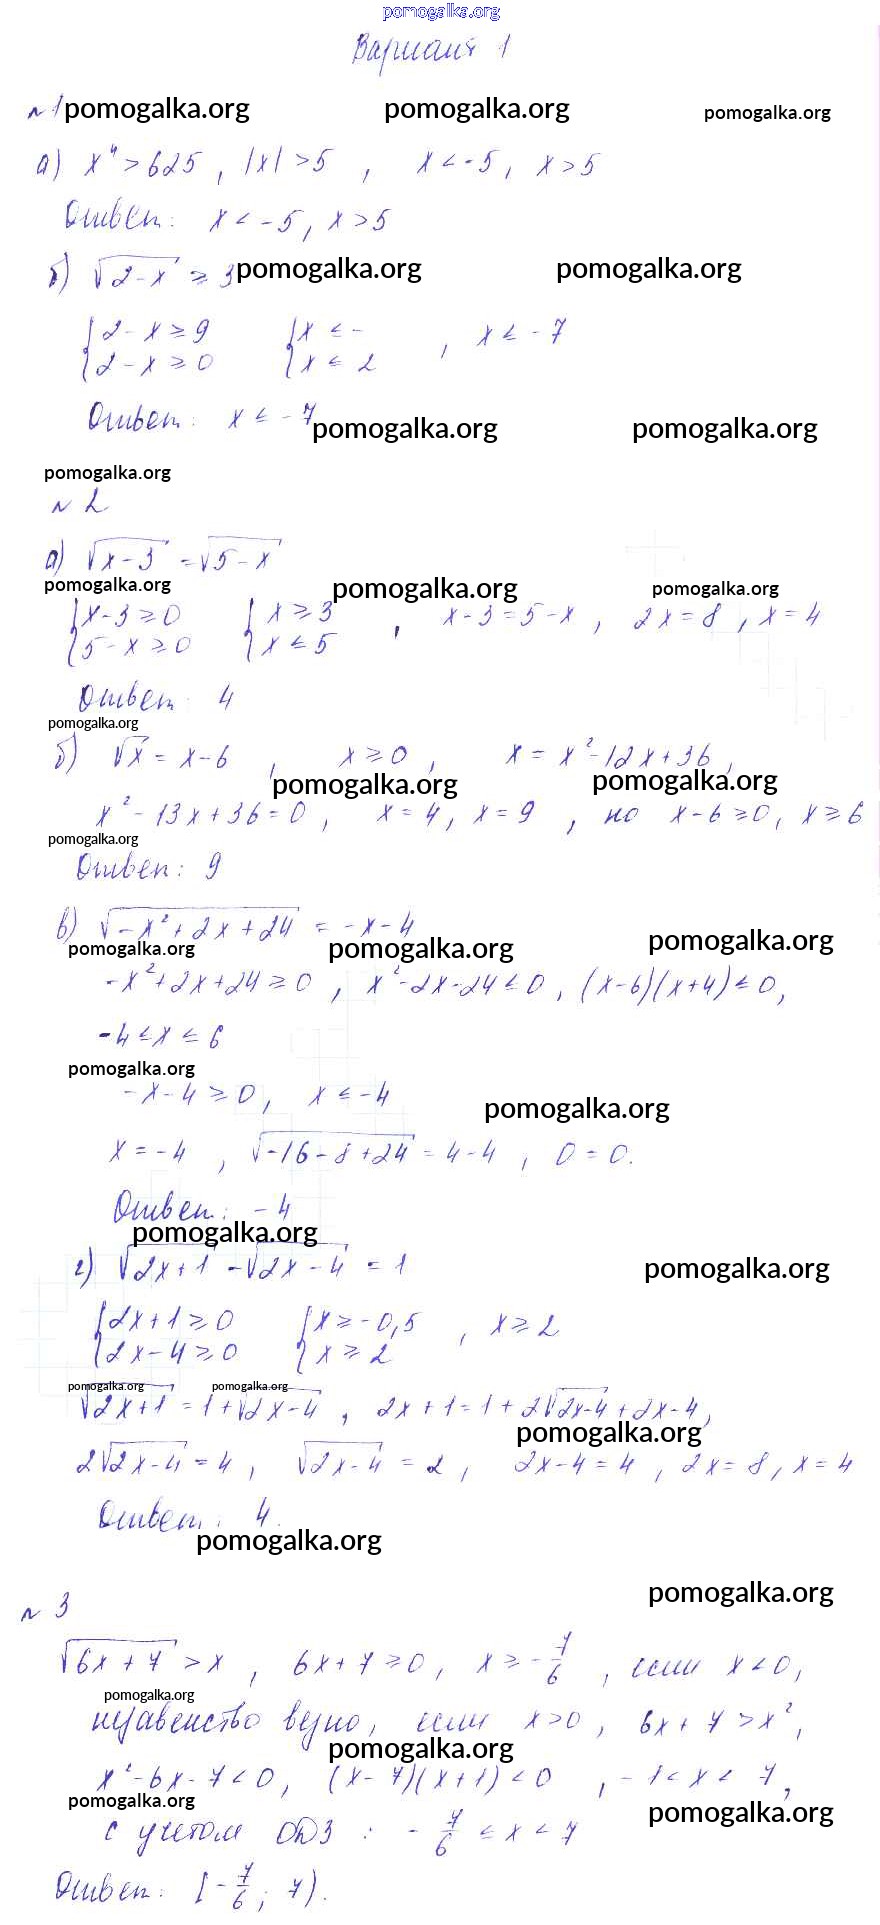 pomogalka.org
Вариант 1
№1 pomogalka.org pomogalka.org pomogalka.org
а) x⁴ > 625, |x| > 5, x < -5, x > 5
Ответ: x < -5, x > 5
б) √(2-x) ≥ 3 pomogalka.org pomogalka.org
{2-x ≥ 9 {x ≤ -
{2-x ≥ 0 {x ≤ 2 , x ≤ -7
Ответ: x ≤ -7
pomogalka.org pomogalka.org
pomogalka.org
№2
а) √(x-3) = √(5-x)
pomogalka.org pomogalka.org pomogalka.org
{x-3 ≥ 0 {x ≥ 3 , x-3 = 5-x, 2x = 8, x = 4
{5-x ≥ 0 {x ≤ 5
Ответ: 4
pomogalka.org
б) √x = x-6, x ≥ 0, x = x²-12x+36,
pomogalka.org pomogalka.org
x²-13x+36=0, x=4, x=9, но x-6 ≥ 0, x ≥ 6
pomogalka.org
Ответ: 9
в) √(-x²+2x+24) = -x-4
pomogalka.org pomogalka.org pomogalka.org
-x²+2x+24 ≥ 0, x²-2x-24 ≤ 0, (x-6)(x+4) ≤ 0,
-4 ≤ x ≤ 6
pomogalka.org
-x-4 ≥ 0, x ≤ -4
pomogalka.org
x = -4, √(-16-8+24) = 4-4, 0 = 0.
Ответ: -4
pomogalka.org
г) √(2x+1) - √(2x-4) = 1
pomogalka.org
{2x+1 ≥ 0 {x ≥ -0,5 , x ≥ 2
{2x-4 ≥ 0 {x ≥ 2
pomogalka.org pomogalka.org
√(2x+1) = 1+√(2x-4), 2x+1 = 1+2√(2x-4)+2x-4,
pomogalka.org
2√(2x-4) = 4, √(2x-4) = 2, 2x-4 = 4, 2x = 8, x = 4
Ответ: 4.
pomogalka.org
pomogalka.org
№3
√(6x+7) > x, 6x+7 ≥ 0, x ≥ -7/6, если x < 0,
pomogalka.org
неравенство верно, если x > 0, 6x+7 > x²,
pomogalka.org
x²-6x-7 < 0, (x-7)(x+1) < 0, -1 < x < 7,
pomogalka.org pomogalka.org
с учетом ОДЗ: -7/6 ≤ x < 7
Ответ: [-7/6; 7).